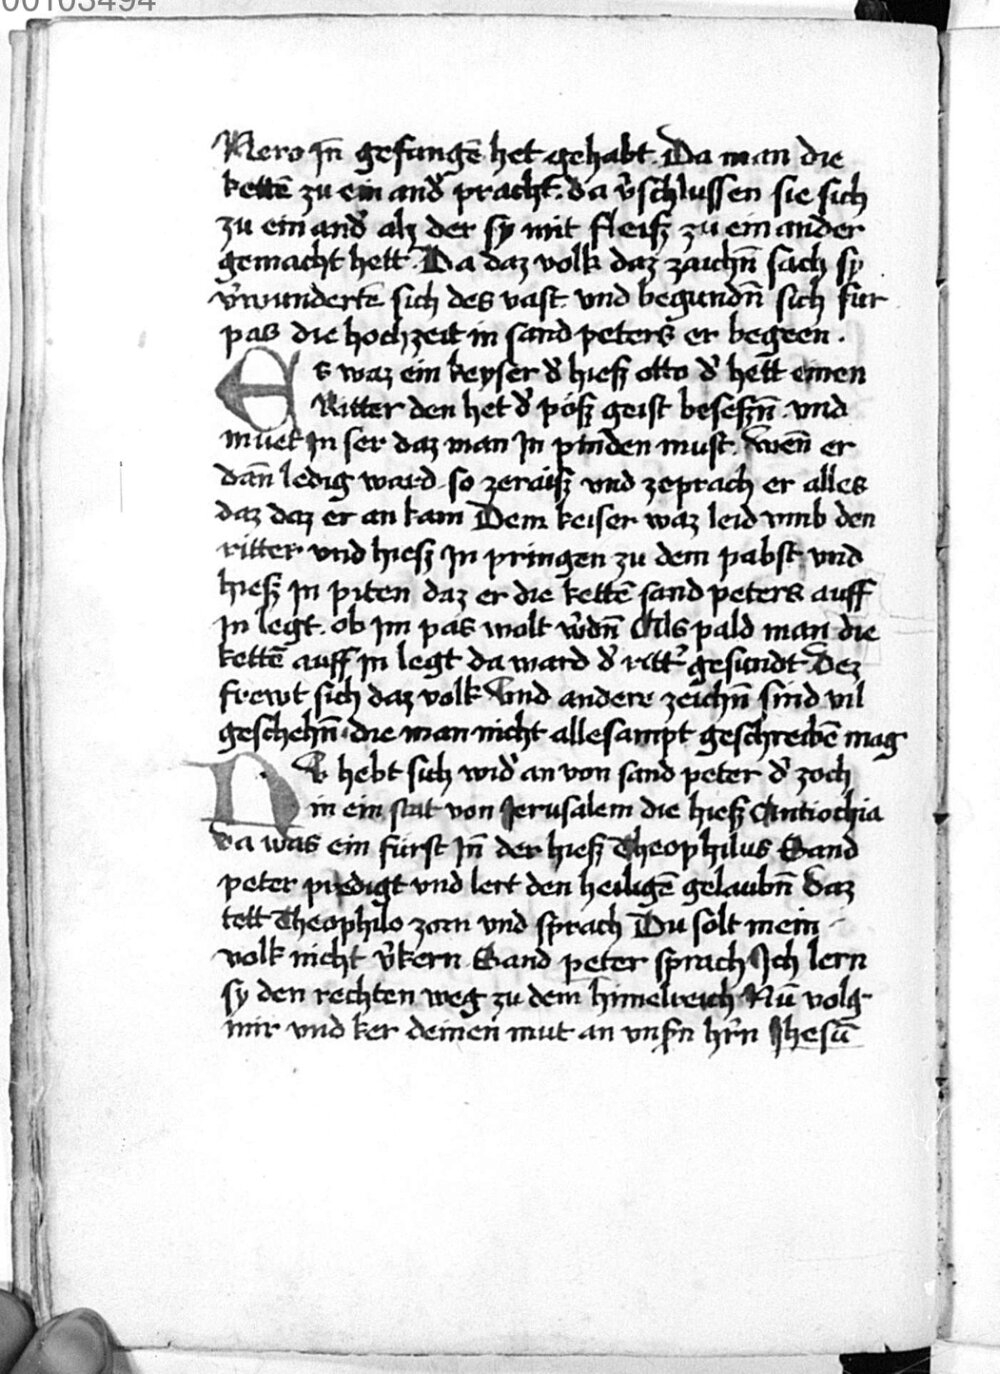 00103494
Nero jn̄ gefangē het gehabt. Da man die
kettē zu ein and̾ pracht. da v̾schlussen sie sich
zu ein and̾ alz der sy mit fleisz zu ein ander
gemacht hett. Da daz volk daz zaichn̄ sach sy
v̾wunderte sich des vast vnd begundn̄ sich fur
pas die hochzeit in sand peters er begeen.
Es waz ein keyser d̾ hiesz otto d̾ hett einen
Ritter den het d̾ pösz geist beseszn̄. vnd
muet jn ser daz man jn pinden must. wen̄ er
dan̄ ledig ward so zeraisz vnd zeprach er alles
daz daz er an kam Dem keiser waz leid vmb den
ritter vnd hiesz jn pringen zu dem pabst vnd
hiesz jn piten daz er die kettē sand peters auff
jn legt. ob jm pas wolt w̾dn̄ Als pald man die
kettē auff jn legt da ward d̾ ritt̾ gesundt Dez
frewt sich daz volk Vnd andere zeichn̄ sind vil
geschehn̄ die man nicht allesampt geschreibē mag
Nv hebt sich wid̾ an von sand peter d̾ zoch
in ein stat von Jerusalem die hiesz Antiochia
da was ein fürst jn̄ der hiesz Theophilus Sand
peter predigt vnd lert den heiligē gelaubn̄ Daz
tett Theophilo zorn vnd sprach Du solt mein
volk nicht v̾kern Sand peter sprach Ich lern
sy den rechten weg zu dem himelreich Nū volg
mir vnd ker deinen mut an vnsn̄ hr̄n Jhesū